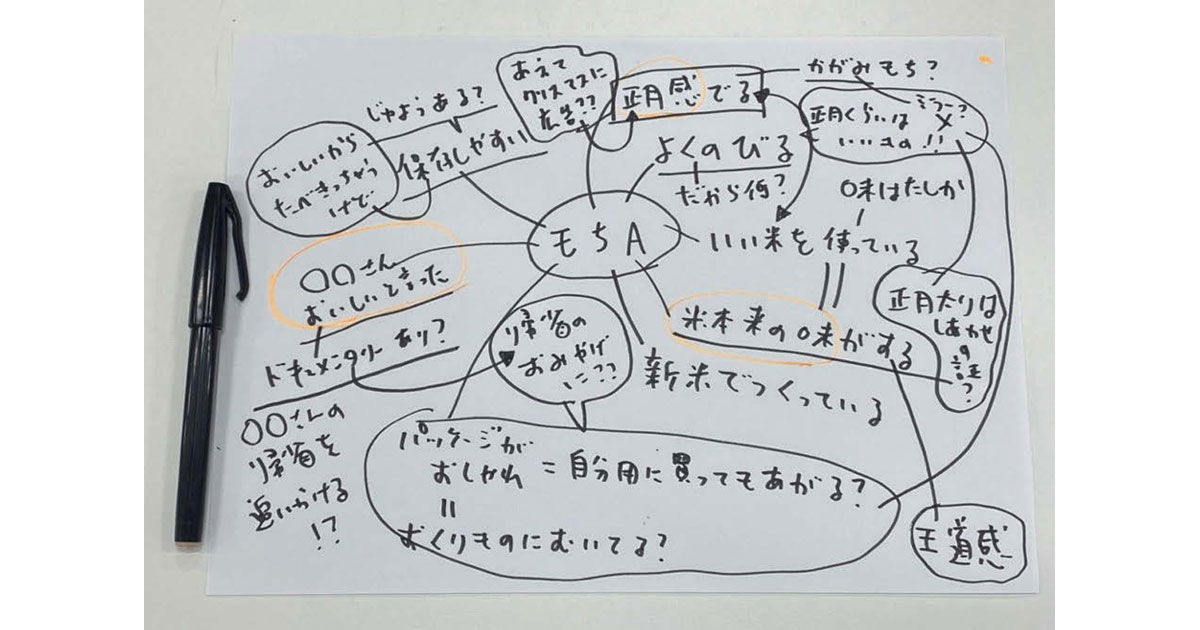 あえて
クリスマスに
広告??
正月感でる
かがみもち?
じゅようある?
保存しやすい
おいしいから
たべきっちゃう
けど…
よくのびる
だから何?
正月くらいは
いいもの!!
ミラー?
〆
味はたしか
モチA
いい米を使っている
〇〇さん
おいしいと言った
ドキュメンタリーあり?
〇〇さんの
帰省を
追いかける
!?
帰省の
おみやげ
に??
米本来の味がする
新米でつくっている
正月太りは
しあわせ
の
証?
パッケージが
おしゃれ=自分用に買ってもあがる?
=
おくりものにむいてる?
王道感